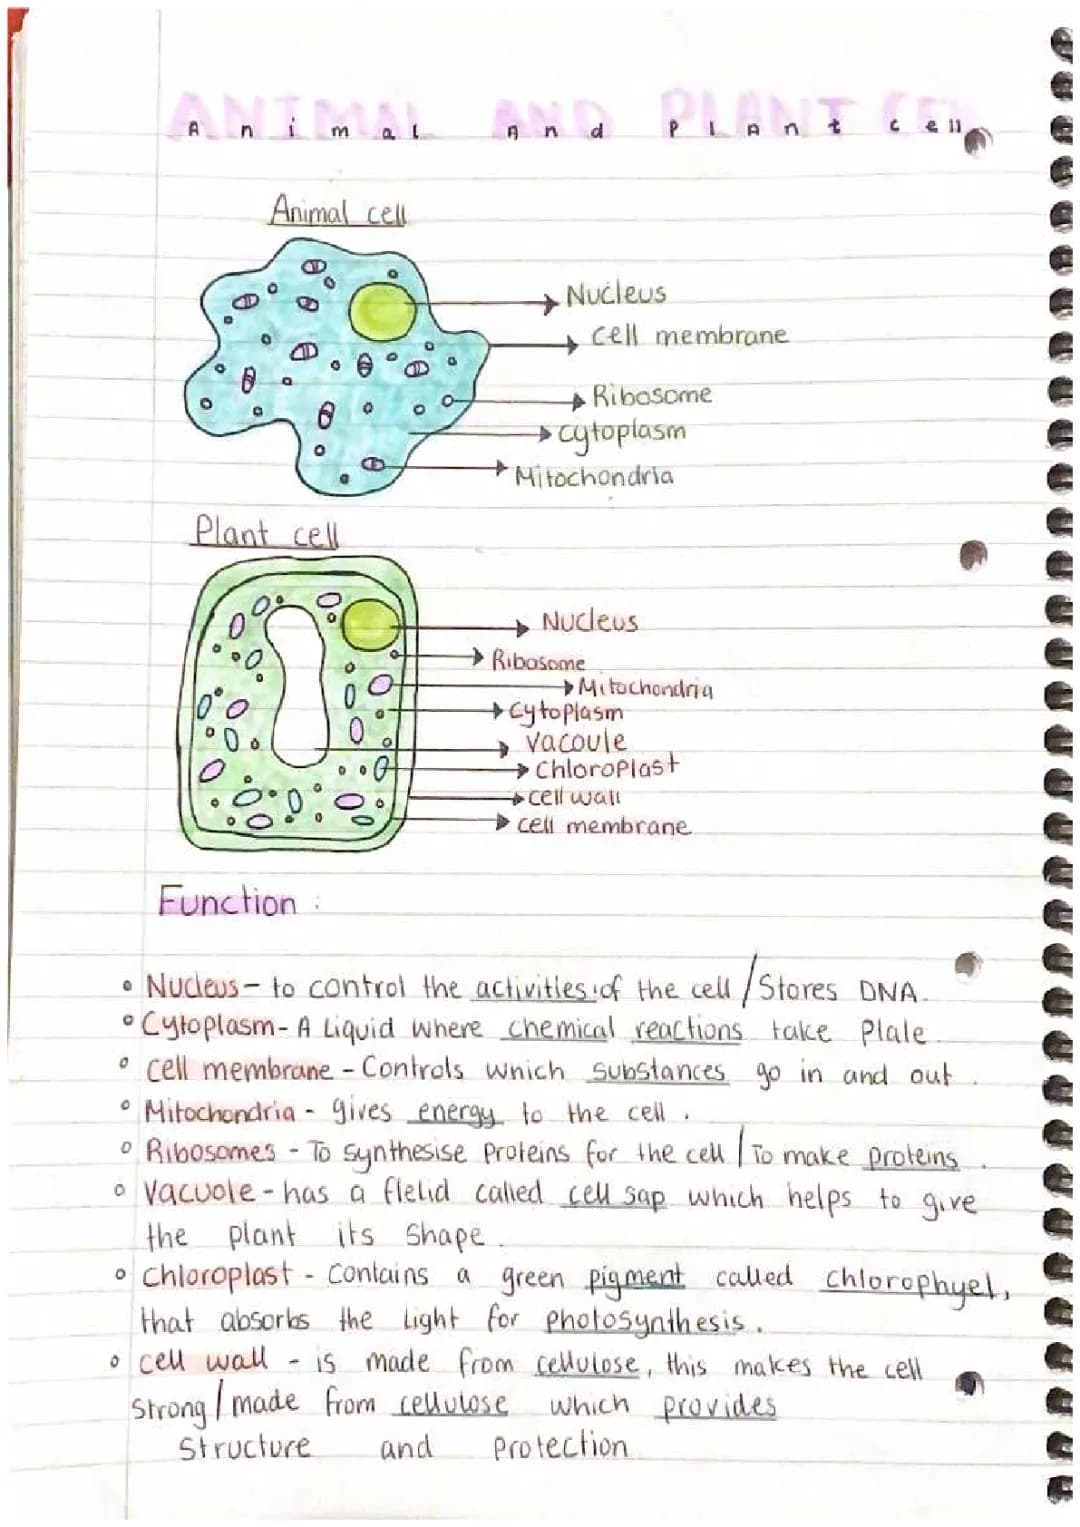 ANIMAL AND PLANT CELL
Animal And Plant cell
Animal cell
Nucleus
cell membrane
Ribosome
cytoplasm
Mitochondria
Plant cell
Nucleus
Ribosome
Mitochondria
cytoplasm
vacoule
chloroplast
cell wall
cell membrane
Function :
• Nucleus - to control the activities of the cell / Stores DNA.
• Cytoplasm - A Liquid where chemical reactions take Plale.
• cell membrane - Controls which substances go in and out.
• Mitochondria - gives energy to the cell.
• Ribosomes - To synthesise Proteins for the cell / To make proteins.
• Vacuole - has a flelid called cell sap which helps to give
the plant its shape.
• Chloroplast - Contains a green pigment called chlorophyel,
that absorbs the light for photosynthesis.
• cell wall - is made from cellulose, this makes the cell
strong / made from cellulose which provides
structure and Protection